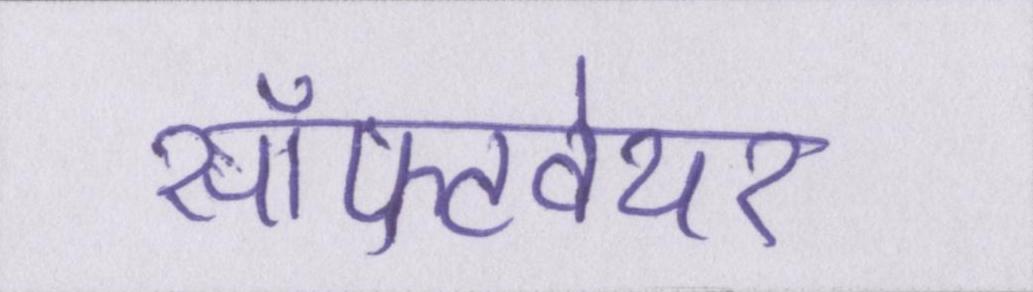 सॉफ्टवेयर